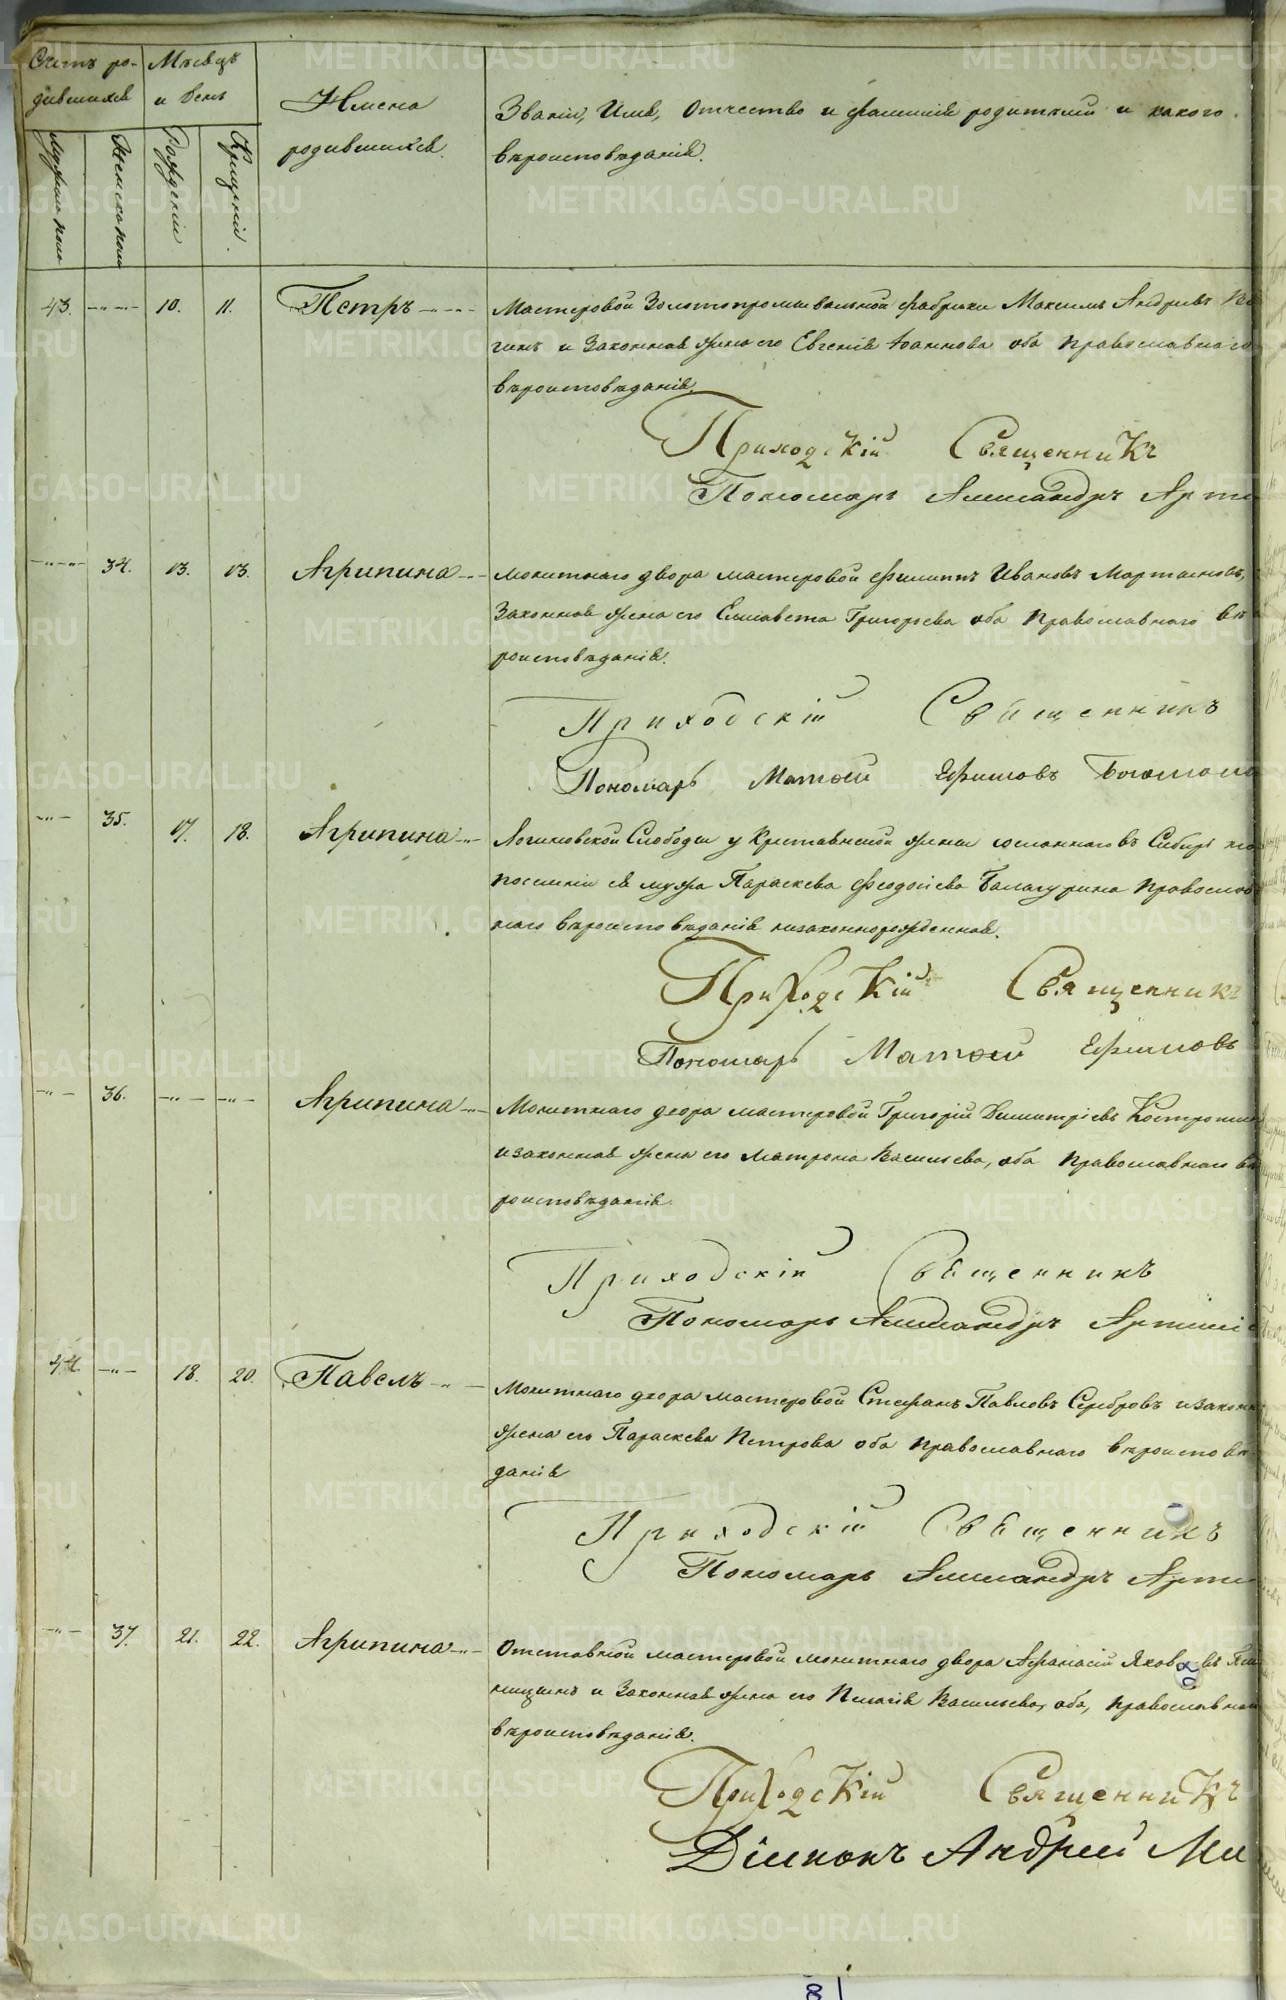 Счетъ ро- Мѣсяцъ
дившихся и день
Имена
родившихся.
Званіе, Имя, Отчество и фамилія родителей и какого
вѣроисповѣданія.
Мужеска пола
Женска пола
Рожденія
Крещенія.
43. 10. 11. Петръ Мастеровой Золотопромывальной фабрики Максимъ Андреевъ
и Законная жена его Евгенія Іоаннова оба православнаго
вѣроисповѣданія.
Приходскій Священникъ
Пономарь Александръ
34. 13. 13. Агрипина монетнаго двора мастеровой Филиппъ Ивановъ Мартыновъ,
Законная жена его Елисавета Григорьева оба православнаго вѣ
роисповѣданія.
Приходскій Священникъ
Пономарь Матфей Ефимовъ
35. 17. 18. Агрипина Логиновской Слободы у Крестьянской жены сосланнаго въ Сибирь на
поселеніе ея мужа Параскева Феодосіева Балагурина православ
наго вѣроисповѣданія незаконнорожденная.
Приходскій Священникъ
Пономарь Матфей Ефимовъ
36. Агрипина Монетнаго двора мастеровой Григорій Димитріевъ
и законная жена его Матрона Васильева, оба православнаго вѣ
роисповѣданія
Приходскій Священникъ
Пономарь Александръ
44. 18. 20. Павелъ Монетнаго двора мастеровой Стефанъ Павловъ Серебровъ и законн
жена его Параскева Петрова оба православнаго вѣроисповѣ
данія
Приходскій Священникъ
Пономарь Александръ
37. 21. 22. Агрипина Отставной мастеровой монетнаго двора Афанасій Яковлевъ
и Законная жена его Пелагія Васильева, оба, православнаго
вѣроисповѣданія.
Приходскій Священникъ
Діаконъ Андрей
METRIKI.GASO-URAL.RU